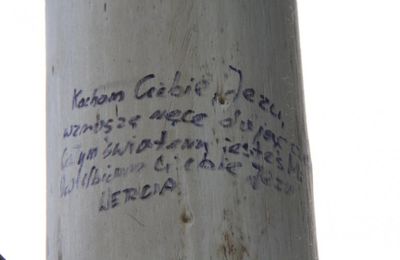 Kocham Ciebie Jezu,
wznoszę ręce dając
Całym światem jesteś Mi
Uwielbiam Ciebie Jezu
WERCIA